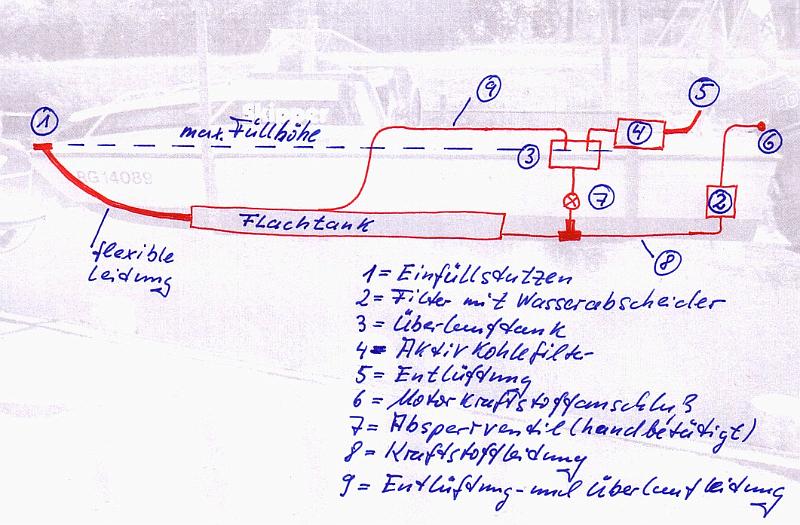 9
5
1
max. Füllhöhe
3
4
6
BG14089
7
2
Flachtank
flexible
Leidung
8
1 = Einfüllstutzen
2 = Filter mit Wasserabscheider
3 = Überlauftank
4 = Aktivkohlefilter
5 = Entlüftung
6 = Motorkraftstoffanschluß
7 = Absperrventil (handbetätigt)
8 = Kraftstoffleidung
9 = Entlüftung- und Überlaufleidung